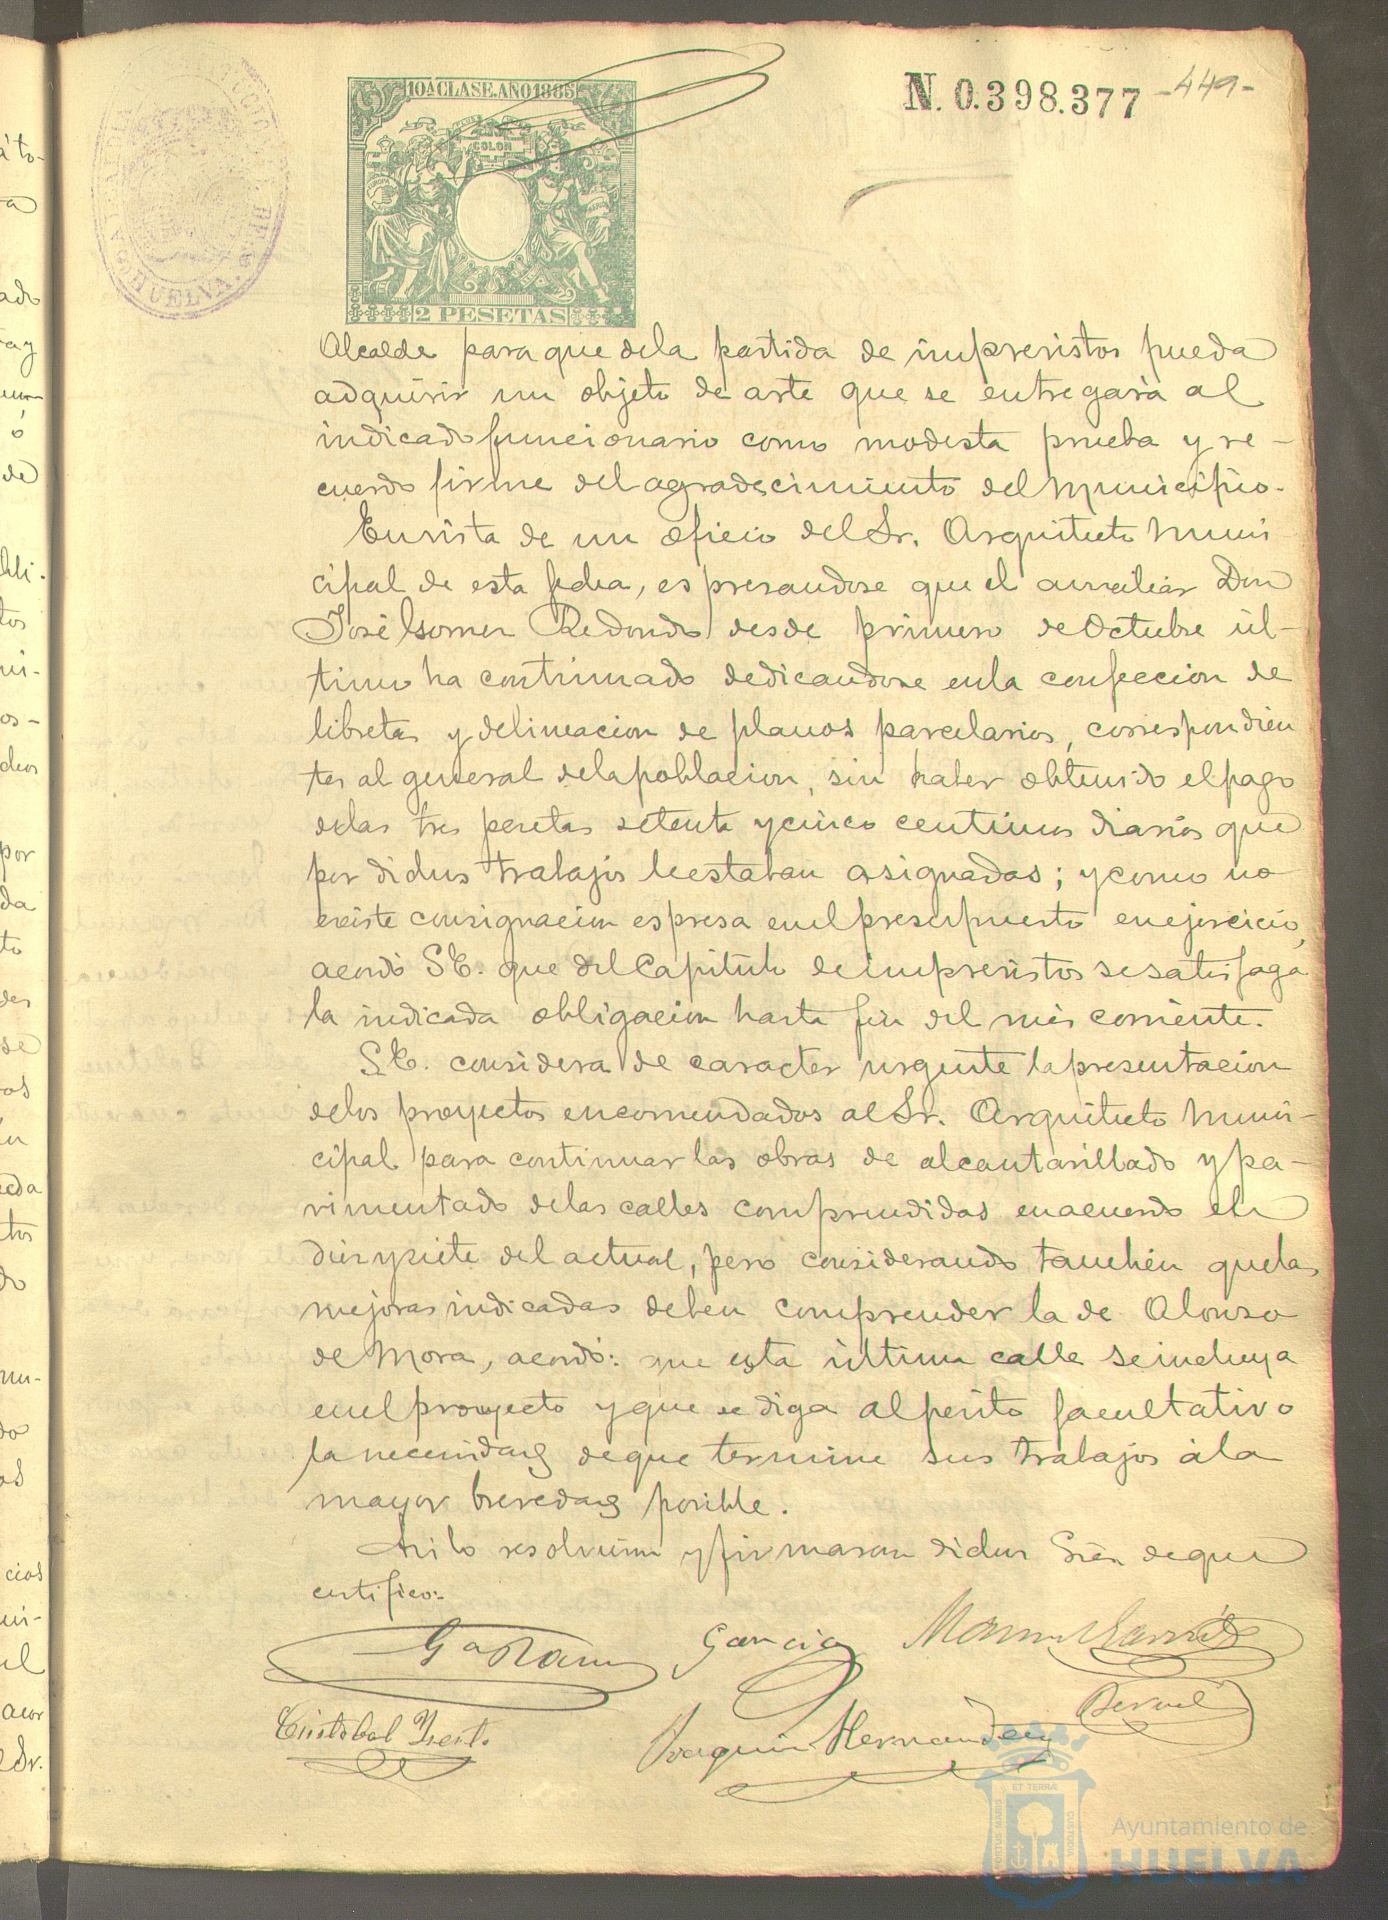 10ª CLASE. AÑO 1885
COLON
EUROPA
2 PESETAS
HUELVA
N. 0.398.377
-449-
Alcalde para que dela partida de imprevistos pueda
adquirir un objeto de arte que se entregará al
indicado funcionario como modesta prueba y re-
cuerdo firme del agradecimiento del Municipio.
En vista de un oficio del Sr. Arquitecto Muni
cipal de esta fecha, espresandose que el auxiliar Don
José Isomer Redondo desde primero de Octubre úl-
timo ha continuado dedicandose en la confeccion de
libretas y delineacion de planos parcelarios, correspondien
tes al general dela poblacion, sin haber obtenido el pago
delas tres pesetas setenta y cinco centimos diarios que
por dichos trabajos le estaban asignadas; y como no
existe consignacion espresa en el presupuesto en ejercicio,
acordó S.E. que del Capitulo de imprevistos se satisfaga
la indicada obligacion hasta fin del mes corriente.
S.E. considera de caracter urgente la presentacion
delos proyectos encomendados al Sr. Arquitecto Muni-
cipal para continuar las obras de alcantarillado y pa-
vimentado delas calles comprendidas en acuerdo del
diez y siete del actual, pero considerando tambien que las
mejoras indicadas deben comprender la de Alonso
de Mora, acordó: que esta última calle se incluya
en el proyecto y que se diga al perito facultativo
la necesidad de que termine sus trabajos á la
mayor brevedad posible.
Asi lo resolvieron y firmaron dichos Sres. de que
certifico:
Garcia
Cristobal
Joaquin Hernandez
Bernal
ET TERRÆ
CUSTODIA
PORTUS MARIS
Ayuntamiento de
HUELVA